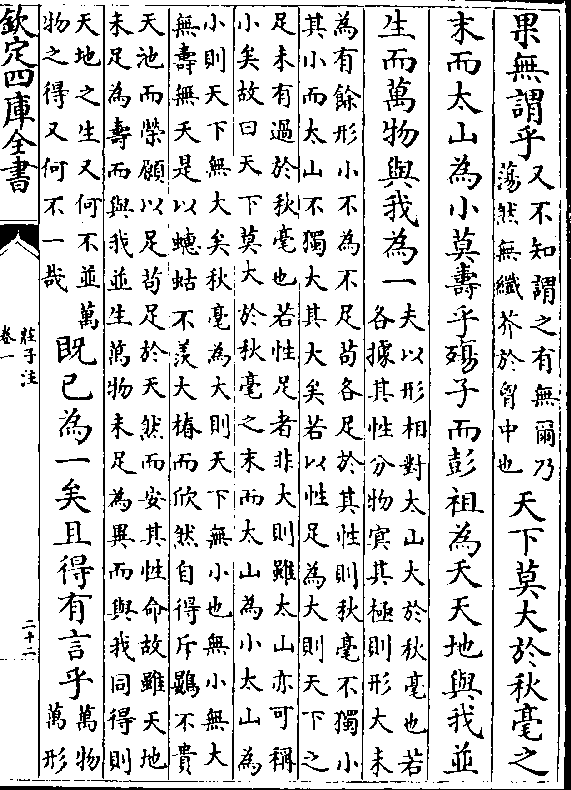 果無謂乎
又不知謂之有無爾乃
蕩然無纖芥於胷中也
天下莫大於秋毫之
末而太山為小莫壽乎殤子而彭祖為夭天地與我並
生而萬物與我為一
夫以形相對太山大於秋毫也若
各據其性分物冥其極則形大未
為有餘形小不為不足苟各足於其性則秋毫不獨小
其小而太山不獨大其大矣若以性足為大則天下之
足未有過於秋毫也若性足者非大則雖太山亦可稱
小矣故曰天下莫大於秋毫之末而太山為小太山為
小則天下無大矣秋毫為大則天下無小也無小無大
無壽無夭是以蟪蛄不羨大椿而欣然自得斥鷃不貴
天池而榮願以足苟足於天然而安其性命故雖天地
未足為壽而與我並生萬物未足為異而與我同得則
天地之生又何不並萬
物之得又何不一哉
既已為一矣且得有言乎
萬物
萬形
欽定四庫全書
莊子注
卷一
二十二